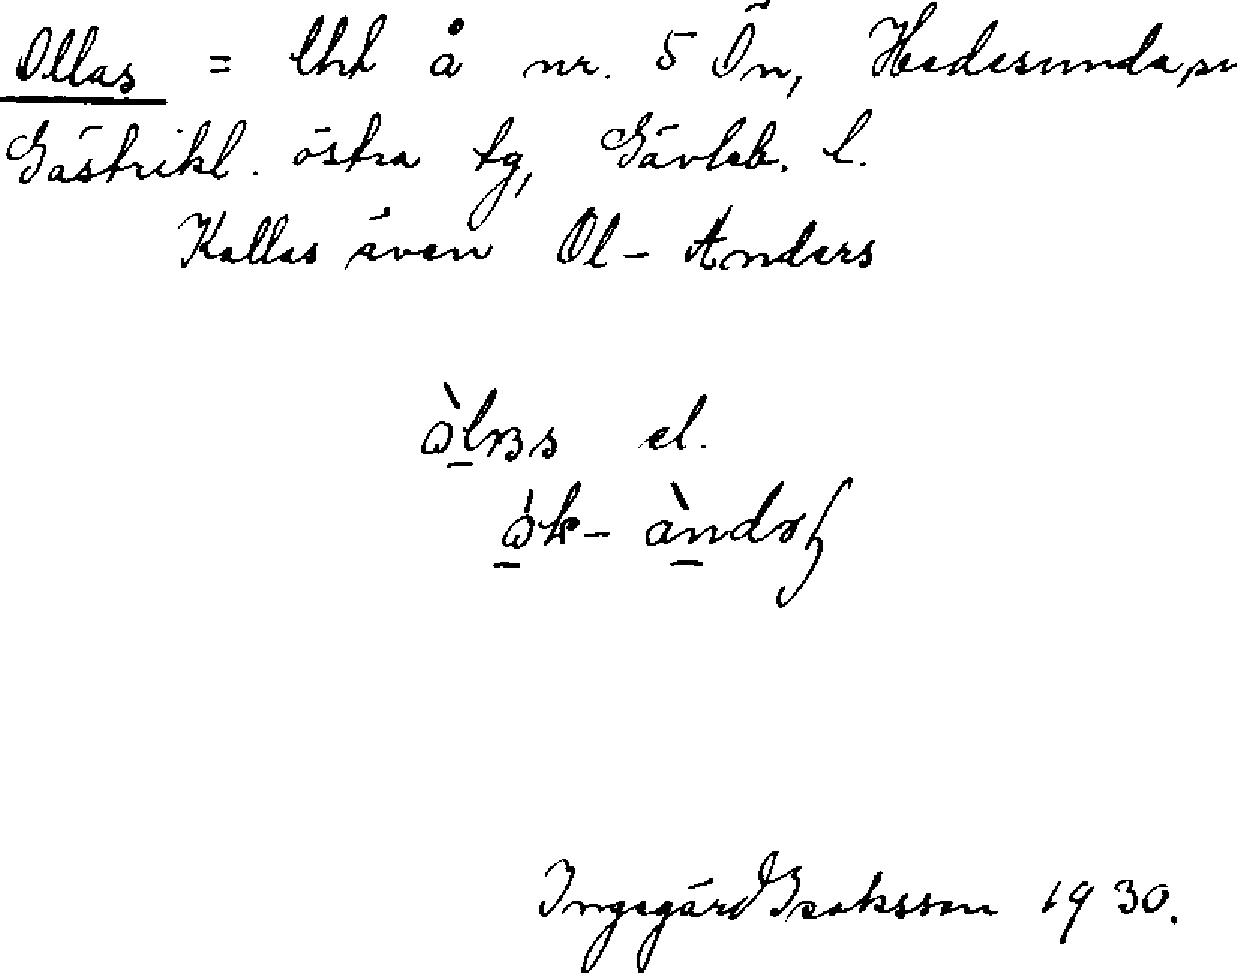 Ollas = lht å nr. 5 Ön, Hedesunda, sn
Gästrikl. östra tg, Gävleb. l.
Kallas även Ol-Anders
el.
Ingegärd Isaksson 1930.